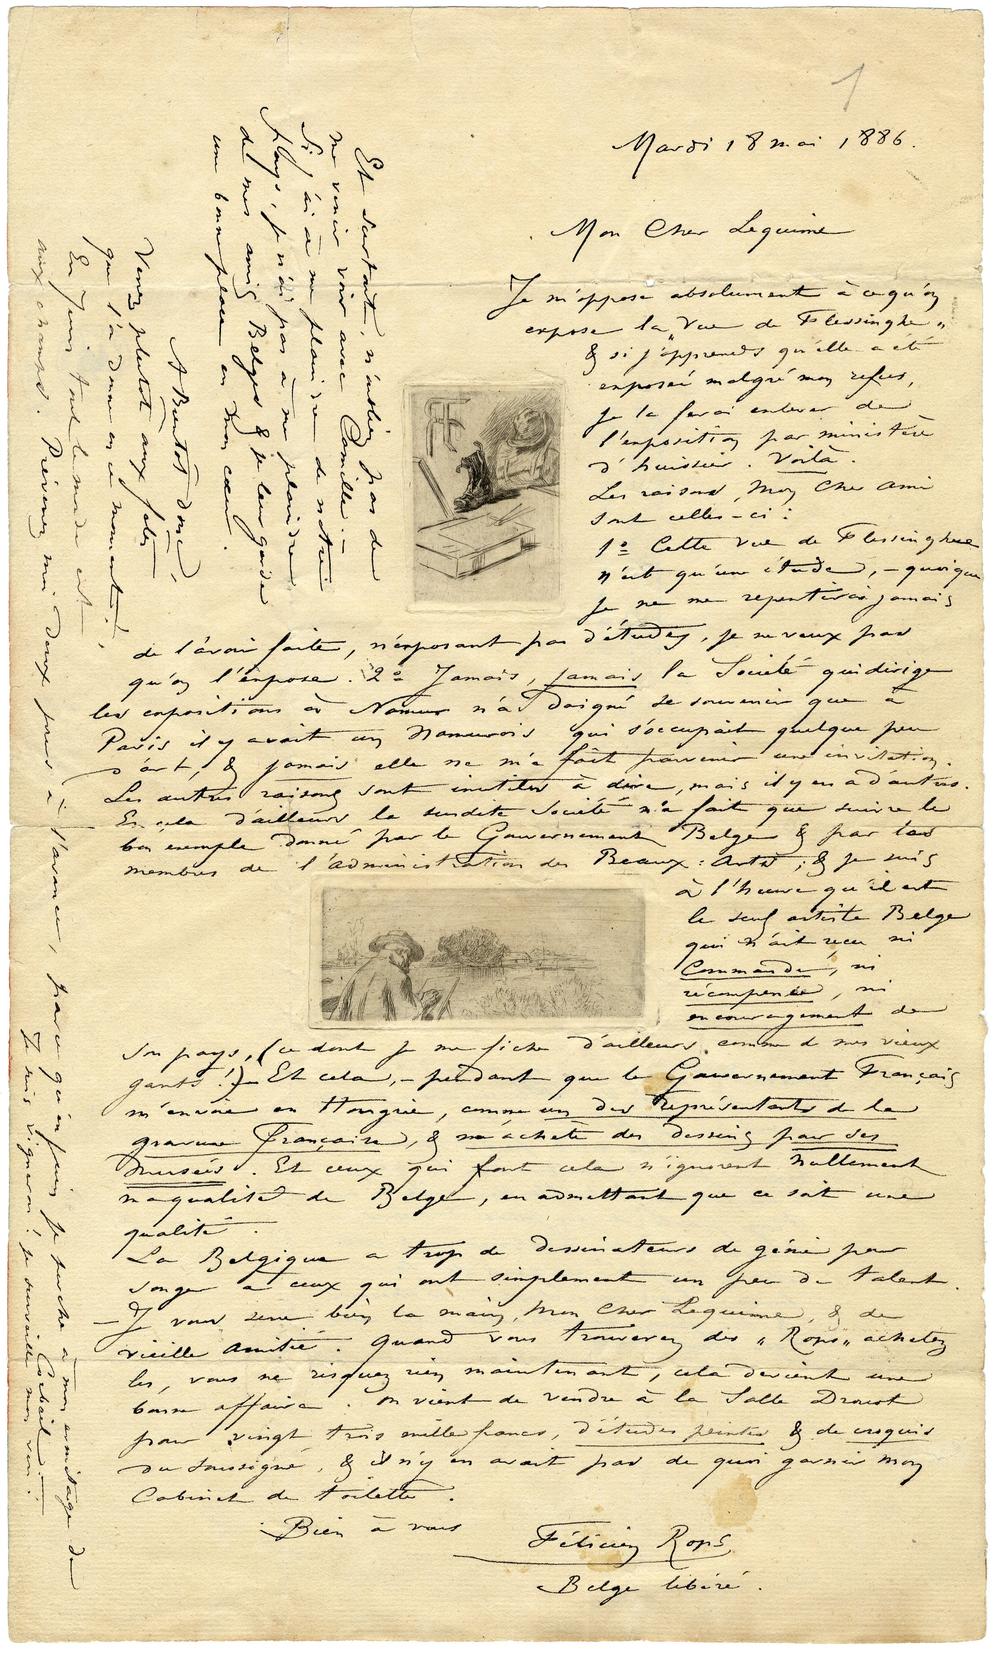 1
Mardi 18 mai 1886.
Mon Cher Lequime
Je m'oppose absolument à ce qu'on
expose la "Vue de Flessinghe„
& si j'apprends qu'elle a été
exposée malgré mon refus,
je la ferai enlever de
l'exposition par ministère
d'huissier. Voilà.
Les raisons, Mon Cher ami
sont celles-ci :
1º Cette vue de Flessinghue
n'est qu'une étude, – quoique
je ne me repentirai jamais
de l'avoir faite, n'exposant pas d'études, je ne veux pas
qu'on l'expose. 2º Jamais, jamais la Société qui dirige
les expositions à Namur n'a daigné se souvenir que à
Paris il y avait un Namurois qui s'occupait quelque peu
d'art, & jamais elle ne m'a fait parvenir une invitation.
Les autres raisons sont inutiles à dire, mais il y en a d'autres.
En cela d'ailleurs la susdite Société n'a fait que suivre le
bon exemple donné par le Gouvernement Belge & par les
membres de l'administration des Beaux-Arts ; & je suis
à l'heure qu'il est
le seul artiste Belge
qui n'ait reçu ni
Commande, ni
récompense, ni
encouragement de
son pays, (ce dont je me fiche d'ailleurs comme de mes vieux
gants !) – Et cela, – pendant que le Gouvernement Français
m'envoie en Hongrie, comme un des représentants de la
gravure française, & m'achète des dessins pour ses
musées. Et ceux qui font cela n'ignorent nullement
ma qualité de Belge, en admettant que ce soit une
qualité.
La Belgique a trop de dessinateurs de génie pour
songer à ceux qui ont simplement un peu de talent.
– Je vous serre bien la main, Mon Cher Lequime, & de
vieille amitié. Quand vous trouverez des „Rops„ achetez
les, vous ne risquez rien maintenant, cela devient une
bonne affaire. On vient de vendre à la Salle Drouot
pour vingt trois mille francs, d'études peintes & de croquis
du soussigné, & il n'y en avait pas de quoi garnir mon
Cabinet de toilette.
Bien à vous
Félicien Rops
Belge libéré.
Et surtout, n'oubliez pas de
me venir voir avec Camille. –
Si j'ai à me plaindre de notre
Pays, je n'ai pas à me plaindre
de mes amis Belges & je leur garde
une bonne place en mon cœur.
A Bientôt donc,
Venez plutôt aux fêtes
que l'on donne en ce moment !,
En Juin tout le monde est
aux champs. Prévenez moi deux jours à l'avance, parce qu'en juin je perche à mon ermitage de
Corbeil. –
Je suis vigneron ! je surveille mon vin !